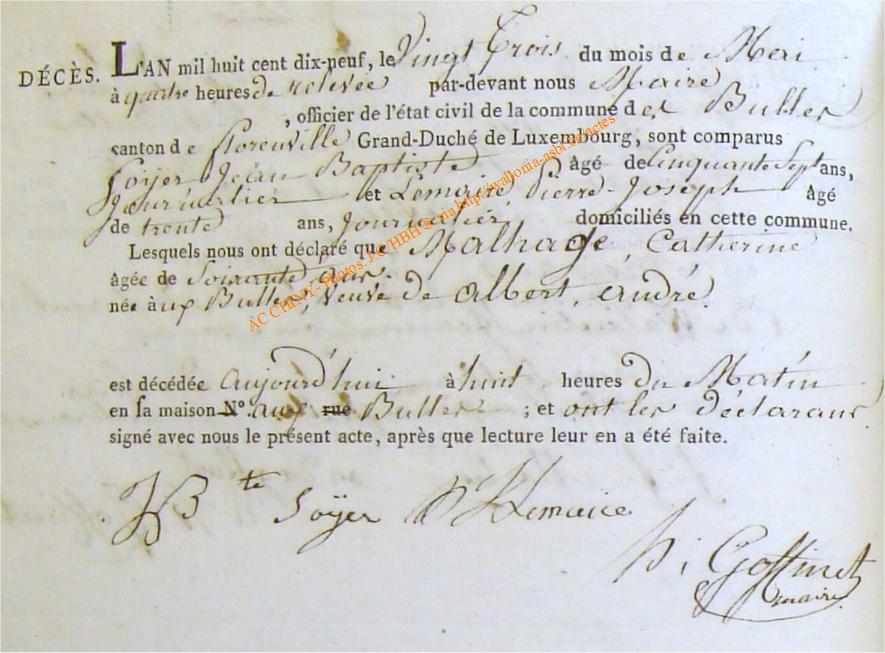 DÉCÈS. L'AN mil huit cent dix-neuf, le Vingt Trois du mois de Mai
à quatre heures de relevée par-devant nous Maire
, officier de l'état civil de la commune des Bulles
canton de florenville Grand-Duché de Luxembourg, sont comparus
Soÿer Jean Baptiste âgé de Cinquante Sept ans,
Journalier et Lemaire Pierre Joseph âgé
de trente ans, Journalier domiciliés en cette commune.
Lesquels nous ont déclaré que Malhagé, Catherine
âgée de Soixante ans.
née aux Bulles, veuve de albert, andré.
est décédée aujourd'hui à huit heures du Matin
en sa maison N° aux rue Bulles ; et ont les déclarans
signé avec nous le présent acte, après que lecture leur en a été faite.
JB te Soÿer P J Lemaire
Goffinet
maire
AC CHINY - Photos: J.C/HBH & c/ia http://wallonia-asbl.be/actes